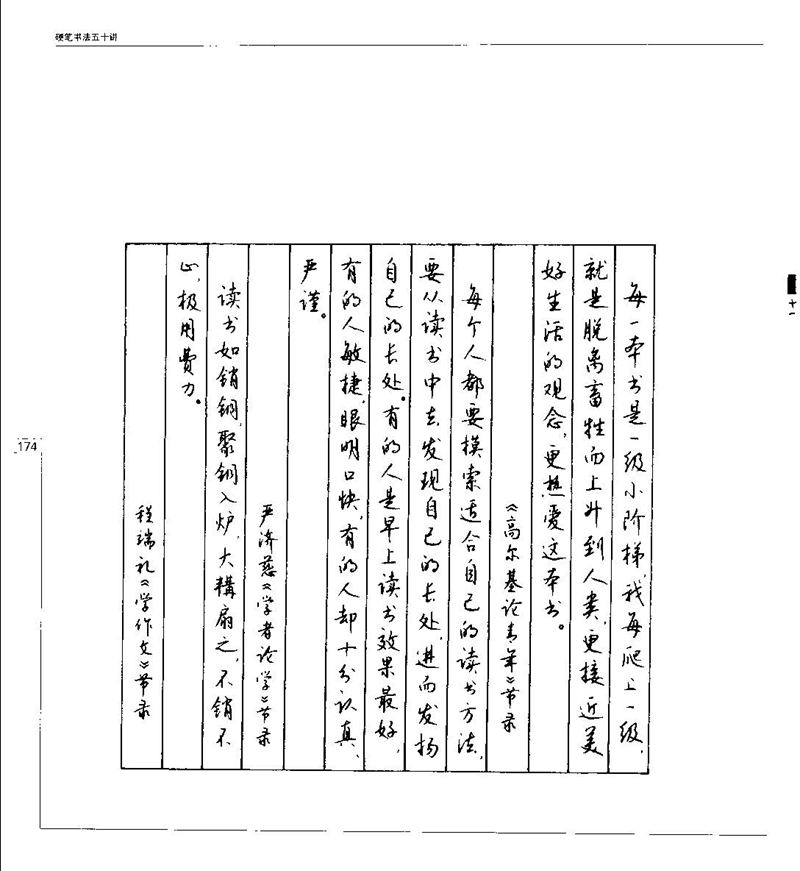 硬笔书法五十讲
每一本书是一级小阶梯,我每爬上一级,
就是脱离畜牲而上升到人类,更接近美
好生活的观念,更热爱这本书。
《高尔基论青年》节录
每个人都要摸索适合自己的读书方法,
要从读书中去发现自己的长处,进而发扬
自己的长处。有的人是早上读书效果最好,
有的人敏捷,眼明口快,有的人却十分认真、
严谨。
严济慈《学者论学》节录
读书如销铜,聚铜入炉,大鞴扇之,不销不
止,极用费力。
程端礼《学作文》节录
174